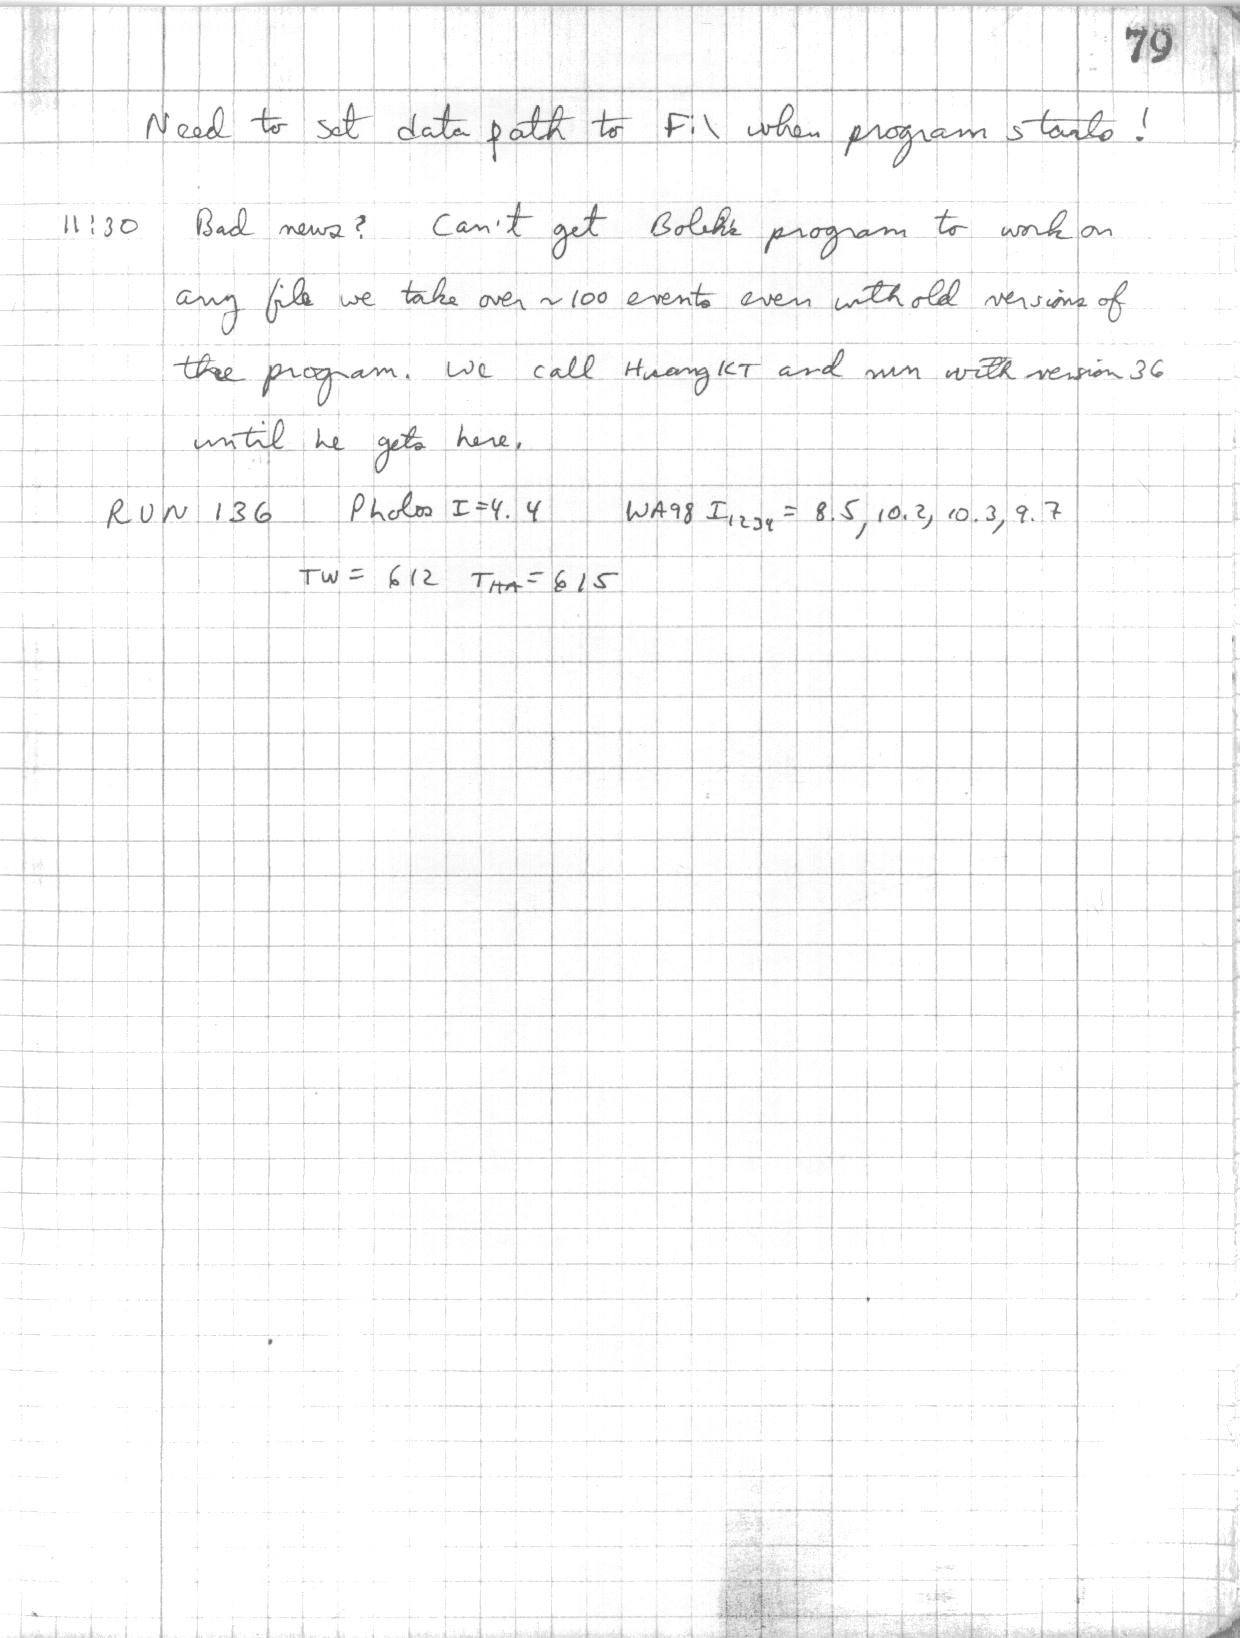 79
Need to set data path to F:\ when program starts!
11:30 Bad news? Can't get Bolek's program to work on
any file we take over ~100 events even with old versions of
the program. We call Huang KT and run with version 36
until he gets here.
RUN 136 Photos I=4.4 WA98 I1234 = 8.5, 10.2, 10.3, 9.7
TW = 612 THA = 615